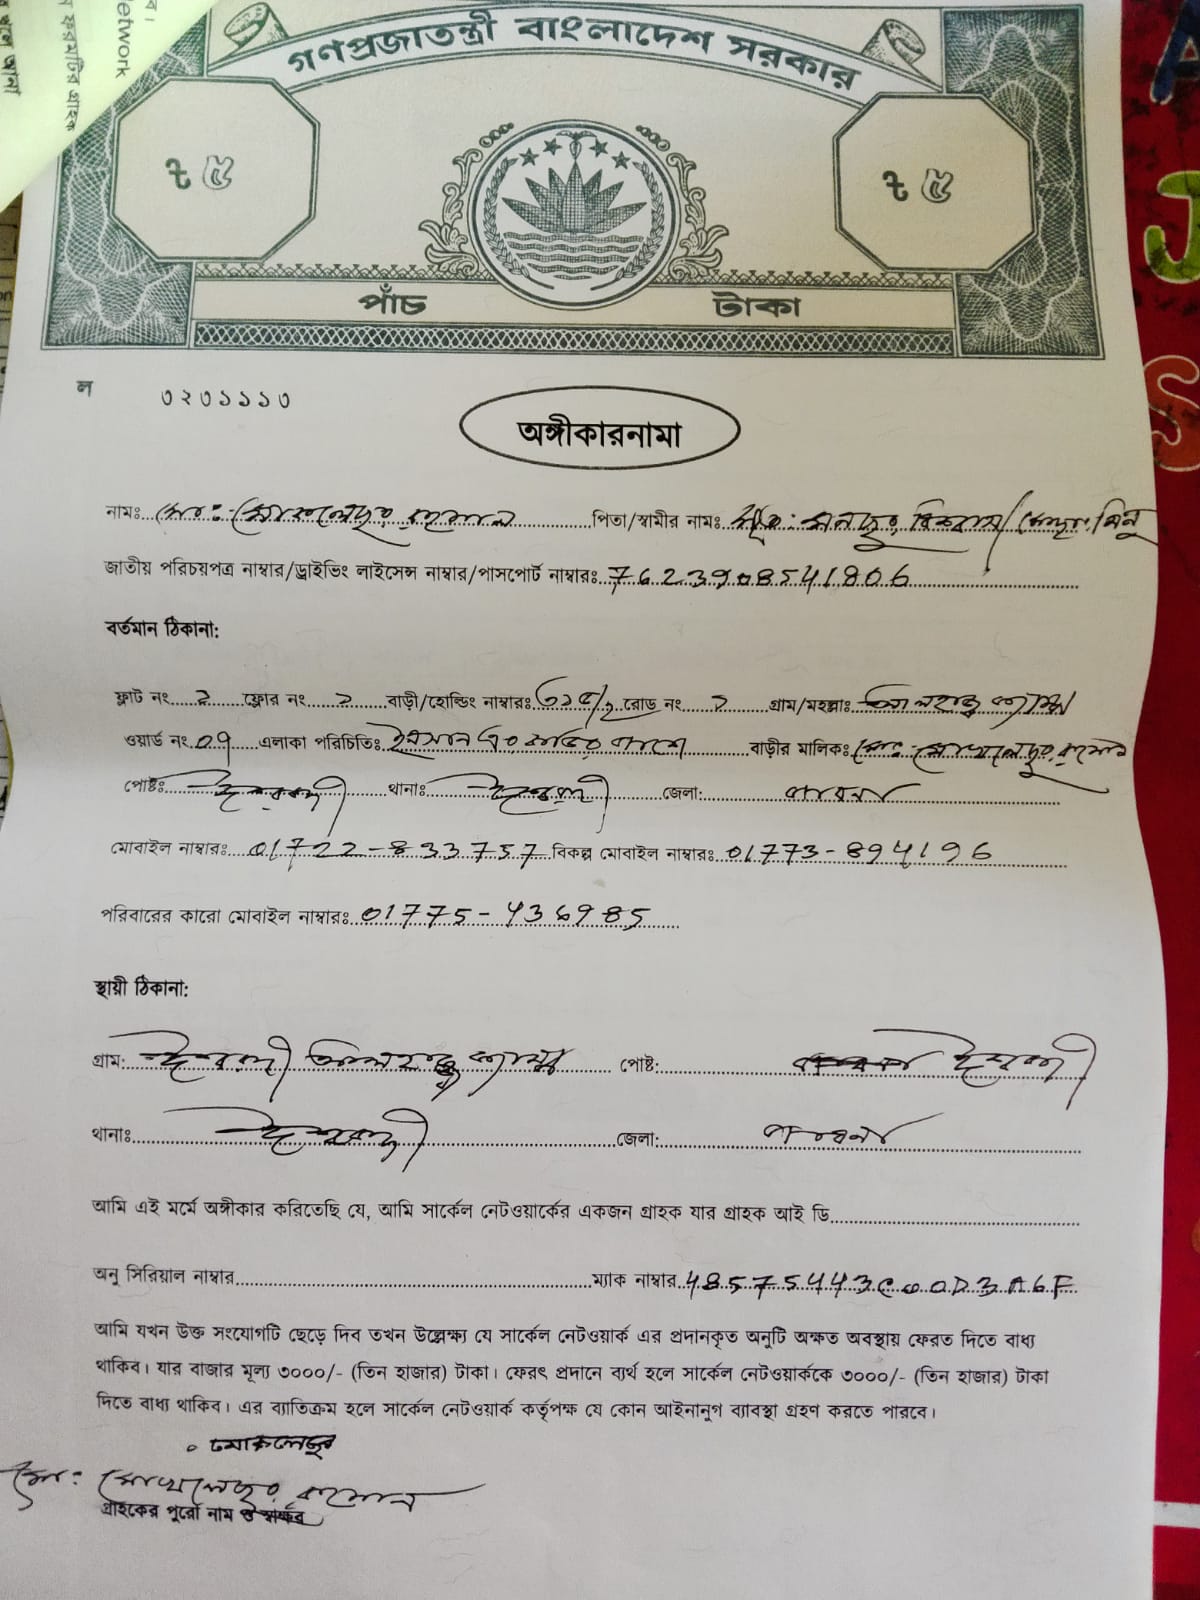 গণপ্রজাতন্ত্রী বাংলাদেশ সরকার
৳ ৫ ৳ ৫
পাঁচ টাকা
ল ৩২৩১১১৩
অঙ্গীকারনামা
নামঃ মোঃ মোখলেছুর রহমান পিতা/স্বামীর নামঃ মৃতঃ বিশ্বাস/মোছাঃ মিনু
জাতীয় পরিচয়পত্র নাম্বার/ড্রাইভিং লাইসেন্স নাম্বার/পাসপোর্ট নাম্বারঃ 7623908541806
বর্তমান ঠিকানা:
ফ্লাট নং ২ ফ্লোর নং ১ বাড়ী/হোল্ডিং নাম্বারঃ ৩১৫/ রোড নং ১ গ্রাম/মহল্লাঃ
ওয়ার্ড নং 09 এলাকা পরিচিতিঃ এর বাড়ির পাশে বাড়ীর মালিকঃ মোঃ মোখলেছুর রহমান
পোষ্টঃ ঈশ্বরদী থানাঃ ঈশ্বরদী জেলা: পাবনা
মোবাইল নাম্বারঃ 01722-833757 বিকল্প মোবাইল নাম্বারঃ 01773-894196
পরিবারের কারো মোবাইল নাম্বারঃ 01775-436985
স্থায়ী ঠিকানা:
গ্রাম: ঈশ্বরদী পোষ্ট: ঈশ্বরদী
থানাঃ ঈশ্বরদী জেলা: পাবনা
আমি এই মর্মে অঙ্গীকার করিতেছি যে, আমি সার্কেল নেটওয়ার্কের একজন গ্রাহক যার গ্রাহক আই ডি
অনু সিরিয়াল নাম্বার ম্যাক নাম্বার 48575443C00D3A6F
আমি যখন উক্ত সংযোগটি ছেড়ে দিব তখন উল্লেক্ষ্য যে সার্কেল নেটওয়ার্ক এর প্রদানকৃত অনুটি অক্ষত অবস্থায় ফেরত দিতে বাধ্য
থাকিব। যার বাজার মূল্য ৩০০০/- (তিন হাজার) টাকা। ফেরৎ প্রদানে ব্যর্থ হলে সার্কেল নেটওয়ার্ককে ৩০০০/- (তিন হাজার) টাকা
দিতে বাধ্য থাকিব। এর ব্যাতিক্রম হলে সার্কেল নেটওয়ার্ক কর্তৃপক্ষ যে কোন আইনানুগ ব্যাবস্থা গ্রহণ করতে পারবে।
মোঃ মোখলেছুর রহমান
গ্রাহকের পুরো নাম ও স্বাক্ষর